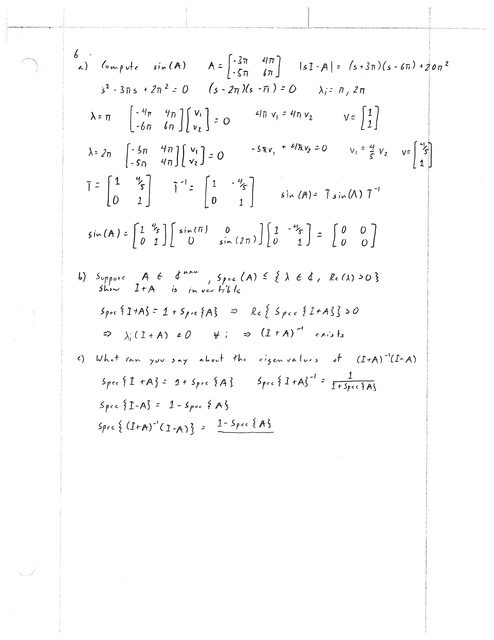 6.
a) Compute sin(A) A = [-3π 4π; -5π 6π] |sI-A| = (s+3π)(s-6π)+20π²
s²-3πs+2π²=0 (s-2π)(s-π)=0 λi = π, 2π
λ=π [-4π 4π; -6π 6π][v1; v2]=0 4πv1=4πv2 v=[1; 1]
λ=2π [-5π 4π; -5π 4π][v1; v2]=0 -5πv1+4πv2=0 v1=4/5 v2 v=[4/5; 1]
T=[1 4/5; 0 1] T⁻¹=[1 -4/5; 0 1] sin(A)=T sin(Λ) T⁻¹
sin(A)=[1 4/5; 0 1][sin(π) 0; 0 sin(2π)][1 -4/5; 0 1]=[0 0; 0 0]
b) Suppose A ∈ ℂⁿˣⁿ, Spec(A) ⊆ {λ ∈ ℂ, Re(λ)>0}
Show I+A is invertible
Spec{I+A} = 1+Spec{A} ⇒ Re{Spec{I+A}}>0
⇒ λi(I+A) ≠ 0 ∀i ⇒ (I+A)⁻¹ exists
c) What can you say about the eigenvalues of (I+A)⁻¹(I-A)
Spec{I+A} = 1+Spec{A} Spec{I+A}⁻¹ = 1/(1+Spec{A})
Spec{I-A} = 1-Spec{A}
Spec{(I+A)⁻¹(I-A)} = 1-Spec{A}